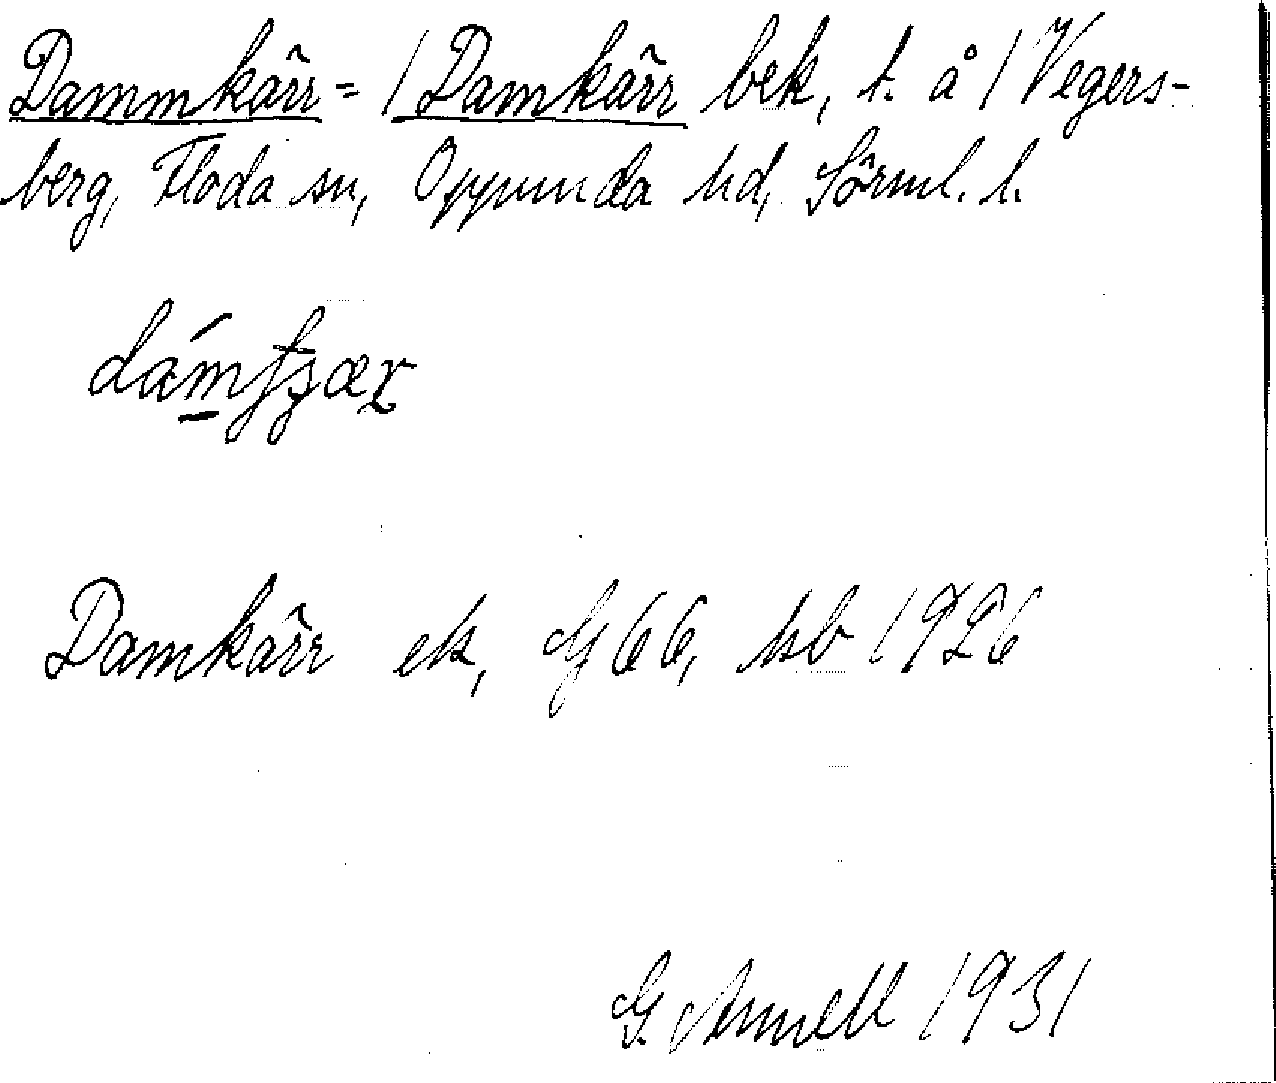 Dammkärr = / Damkärr bek, t. å / Vegers-
berg, Floda sn, Oppunda hd, Sörml. l.
Damkärr ek, G 66, hsb 1926
G. Arnell 1931